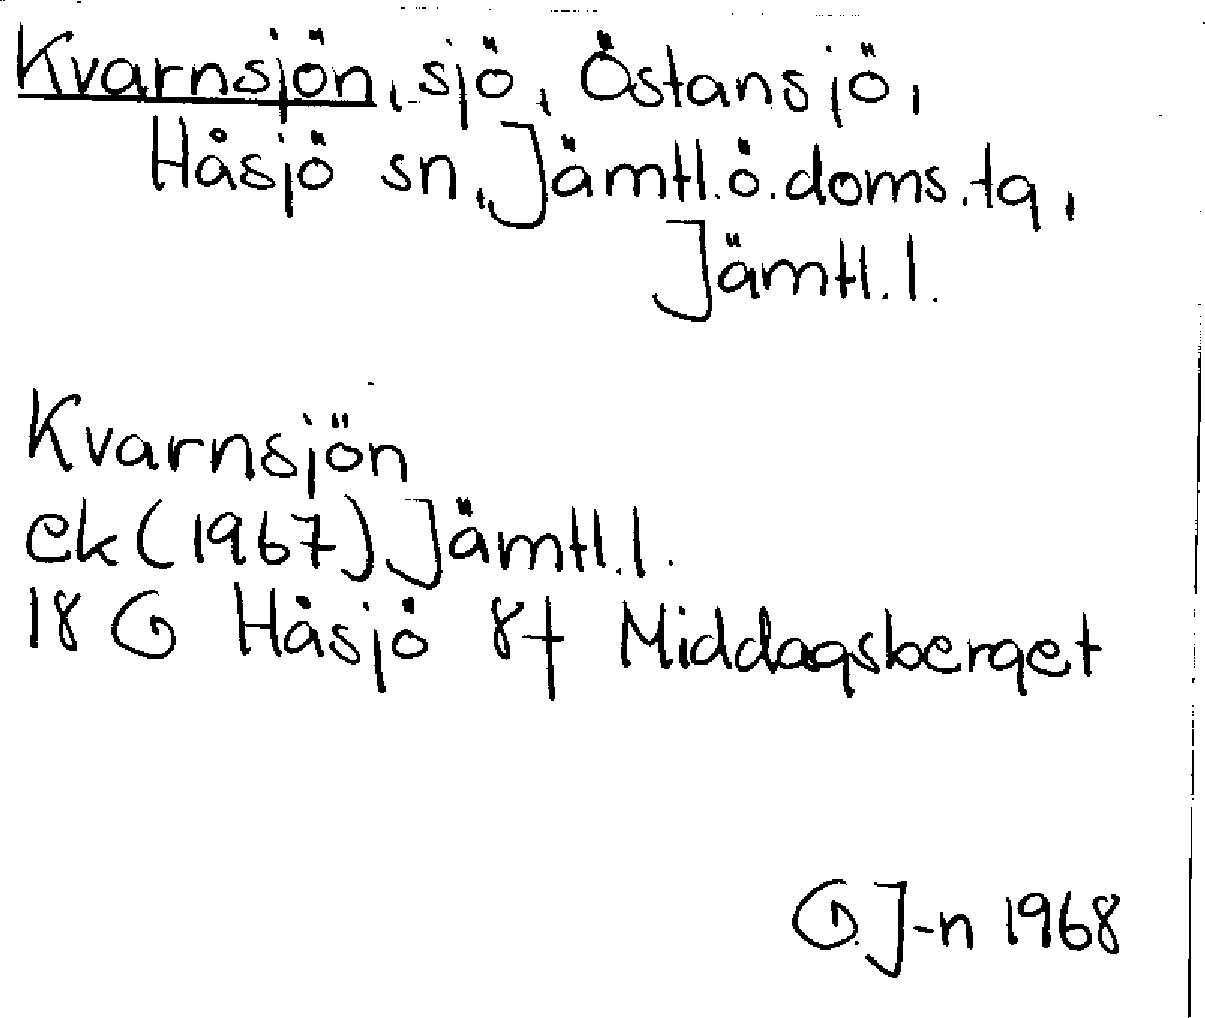 Kvarnsjön, sjö, Östansjö,
Håsjö sn, Jämtl.ö.doms.tg,
Jämtl.l.
Kvarnsjön
ek (1967) Jämtl.l.
18 G Håsjö 8f Middagsberget
G.J-n 1968